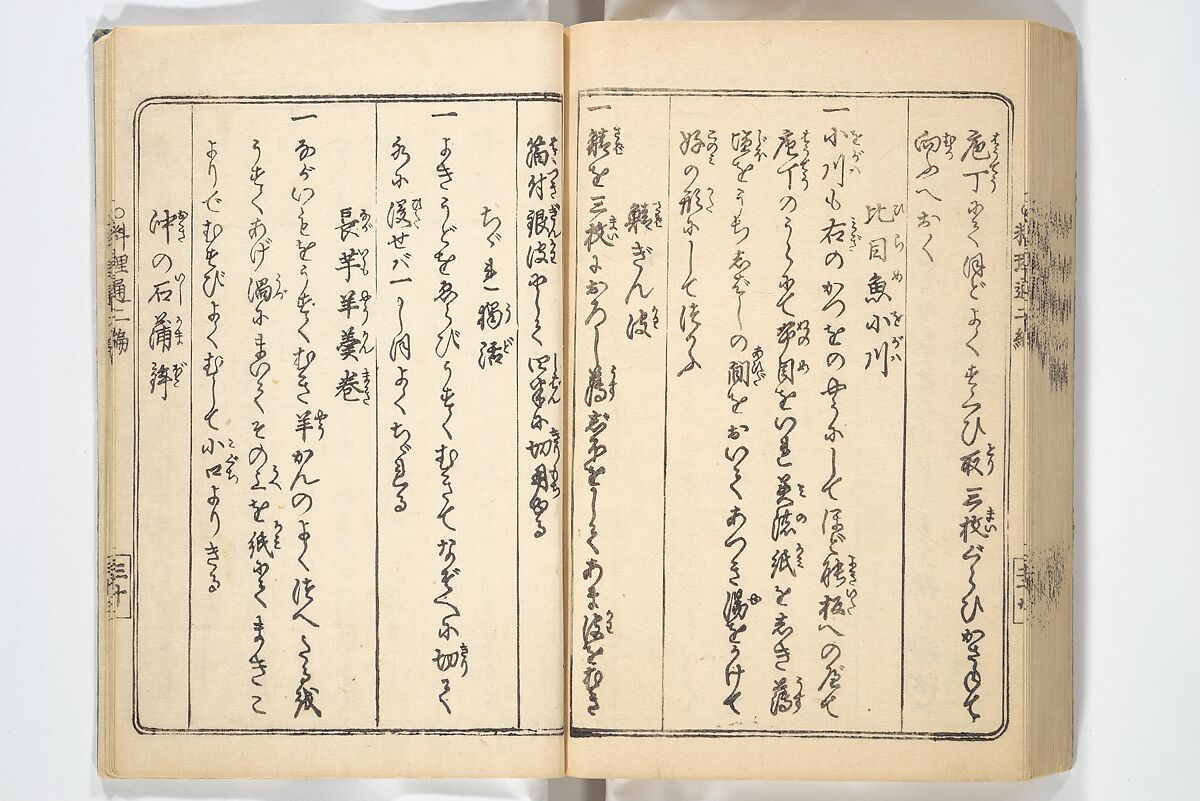 庖丁にてほどよくすくひ取三枚ぐらひかさねて
向ふへおく
比目魚小川
一 小川も右のかつをの如にしてほど能板へのせて
庖丁のうらにて布目をいれ美濃紙をしき薄
塩をうちしばしの間をおいてあつき湯をかけて
好の形にして
鯖ぎん皮
一 鯖を三枚におろし薄
あま皮をむき
銀皮にして 切用ゆる
ちゞれ獨活
一 よきうどをゑらびうすくむきてなぞへに切て
水に浸せば よくちゞれる
長芋羊羹巻
一 ながいもをうすくむき羊かんのよく
うすくあげ渦にまいてその上を紙にてまきこ
よりでむすびよくむして小口よりきる
沖の石蒲鉾
料理通二編
三十